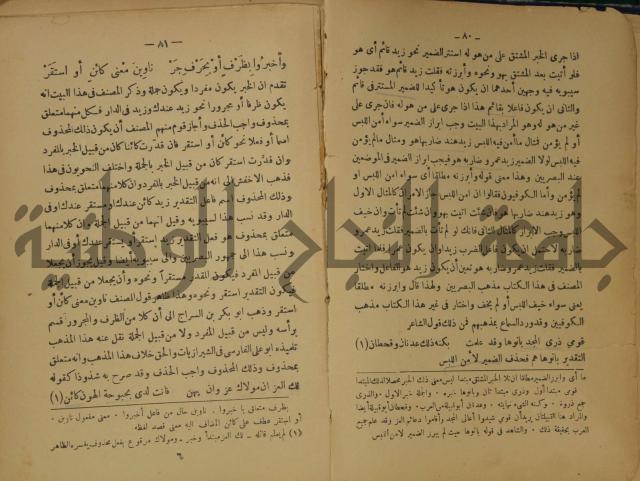 — ٨٠ —
اذا جرى الخبر المشتق على من هو له استتر الضمير نحو زيد قائم أى هو
فلو أتيت بعد المشتق بهو ونحوه وأبرزته فقلت زيد قائم هو فقد جوز
سيبويه فيه وجهين أحدهما ان يكون هو تأكيدا للضمير المستتر فى قائم
والثانى ان يكون فاعلا بقائم هذا اذا جرى على من هو له فان جرى على
غير من هو له وهو المراد بهذا البيت وجب ابراز الضمير سواء أمن اللبس
أو لم يؤمن فمثال ما أمن فيه اللبس زيد هند ضاربها هو ومثال مالم يؤمن
فيه اللبس لولا الضمير زيد عمرو ضاربه هو فيجب ابراز الضمير فى الموضعين
عند البصريين وهذا معنى قوله وأبرزنه مطلقا أى سواء امن اللبس او
لم يؤمن وأما الكوفيون فقالوا ان امن اللبس جاز الامران كالمثال الاول
وهو زيد هند ضاربها هو فان شئت أتيت بهو وان شئت لم تأت وان خيف
اللبس وجب الابراز كالمثال الثانى فانك لو لم تأت بالضمير فقلت زيد عمرو
ضاربه لاحتمل ان يكون فاعل الضرب زيدا وان يكون عمرا فلما اتيت
بالضمير فقلت زيد عمرو ضاربه هو تعين أن يكون زيد هو الفاعل واختار
المصنف فى هذا الكتاب مذهب البصريين ولهذا قال وابرزنه مطلقا
يعنى سواء خيف اللبس أو لم يخف واختار فى غير هذا الكتاب مذهب
الكوفيين وقد ورد السماع بمذهبهم فمن ذلك قول الشاعر
قومى ذرى المجد بانوها وقد علمت بكنه ذلك عدنان وقحطان (١)
التقدير بانوها هم فحذف الضمير لأمن اللبس
قومى مبتدأ أول وذرى مبتدأ ثان وبانوها خبره . والجملة خبر الاول . والذرى
جم ذروة . وكنه الشىء نهايته . وعدنان أبو قبيلة من العرب . وقحطان أبو قبيلة أيضا
العرب بحقيقة ذلك . والشاهد فى قوله بانوها حيث لم يبرز الضمير لأمن اللبس
— ٨١ —
وأخبروا بظرف أو بحرف جر ناوين معنى كائن أو استقر
تقدم ان الخبر يكون مفردا ويكون جملة وذكر المصنف فى هذا البيت انه
يكون ظرفا أو مجرورا نحو زيد عندك وزيد فى الدار فكل منهما متعلق
بمحذوف واجب الحذف وأجاز قوم منهم المصنف أن يكون ذلك المحذوف
اسما أو فعلا نحو كائن أو استقر فان قدرت كائنا كان من قبيل الخبر بالمفرد
وان قدرت استقر كان من قبيل الخبر بالجملة واختلف النحويون فى هذا
فذهب الاخفش الى انه من قبيل الخبر بالمفرد وان كلا منهما متعلق بمحذوف
وذلك المحذوف اسم فاعل التقدير زيد كائن عندك او مستقر عندك او فى
الدار وقد نسب هذا لسيبويه وقيل انهما من قبيل الجملة وان كلا منهما
متعلق بمحذوف هو فعل التقدير زيد استقر او يستقر عندك أو فى الدار
ونسب هذا الى جمهور البصريين والى سيبويه أيضا وقيل يجوز أن يجعلا
من قبيل المفرد فيكون المقدر مستقرا ونحوه وأن يجعلا من قبيل الجملة
فيكون التقدير استقر ونحوه وهذا ظاهر قول المصنف ناوين معنى كائن أو
استقر وذهب ابو بكر بن السراج الى أن كلا من الظرف والمجرور قسم
برأسه وليس من قبيل المفرد ولا من قبيل الجملة نقل عنه هذا المذهب
تلميذه ابو على الفارسى فى الشيرازيات والحق خلاف هذا المذهب وانه متعلق
بمحذوف وذلك المحذوف واجب الحذف وقد صرح به شذوذا كقوله
لك العز ان مولاك عز وان يهن فانت لدى بحبوحة الهون كائن (١)
بظرف متعلق با خبروا . ناوين حال من فاعل أخبروا . معنى مفعول ناوين .
أو استقر عطف على كائن المضاف اليه معنى قصد لفظه
(١) لم يعلم قائله . لك العز مبتدأ وخبر . ومولاك مرفوع بفعل محذوف يفسره الظاهر
٦